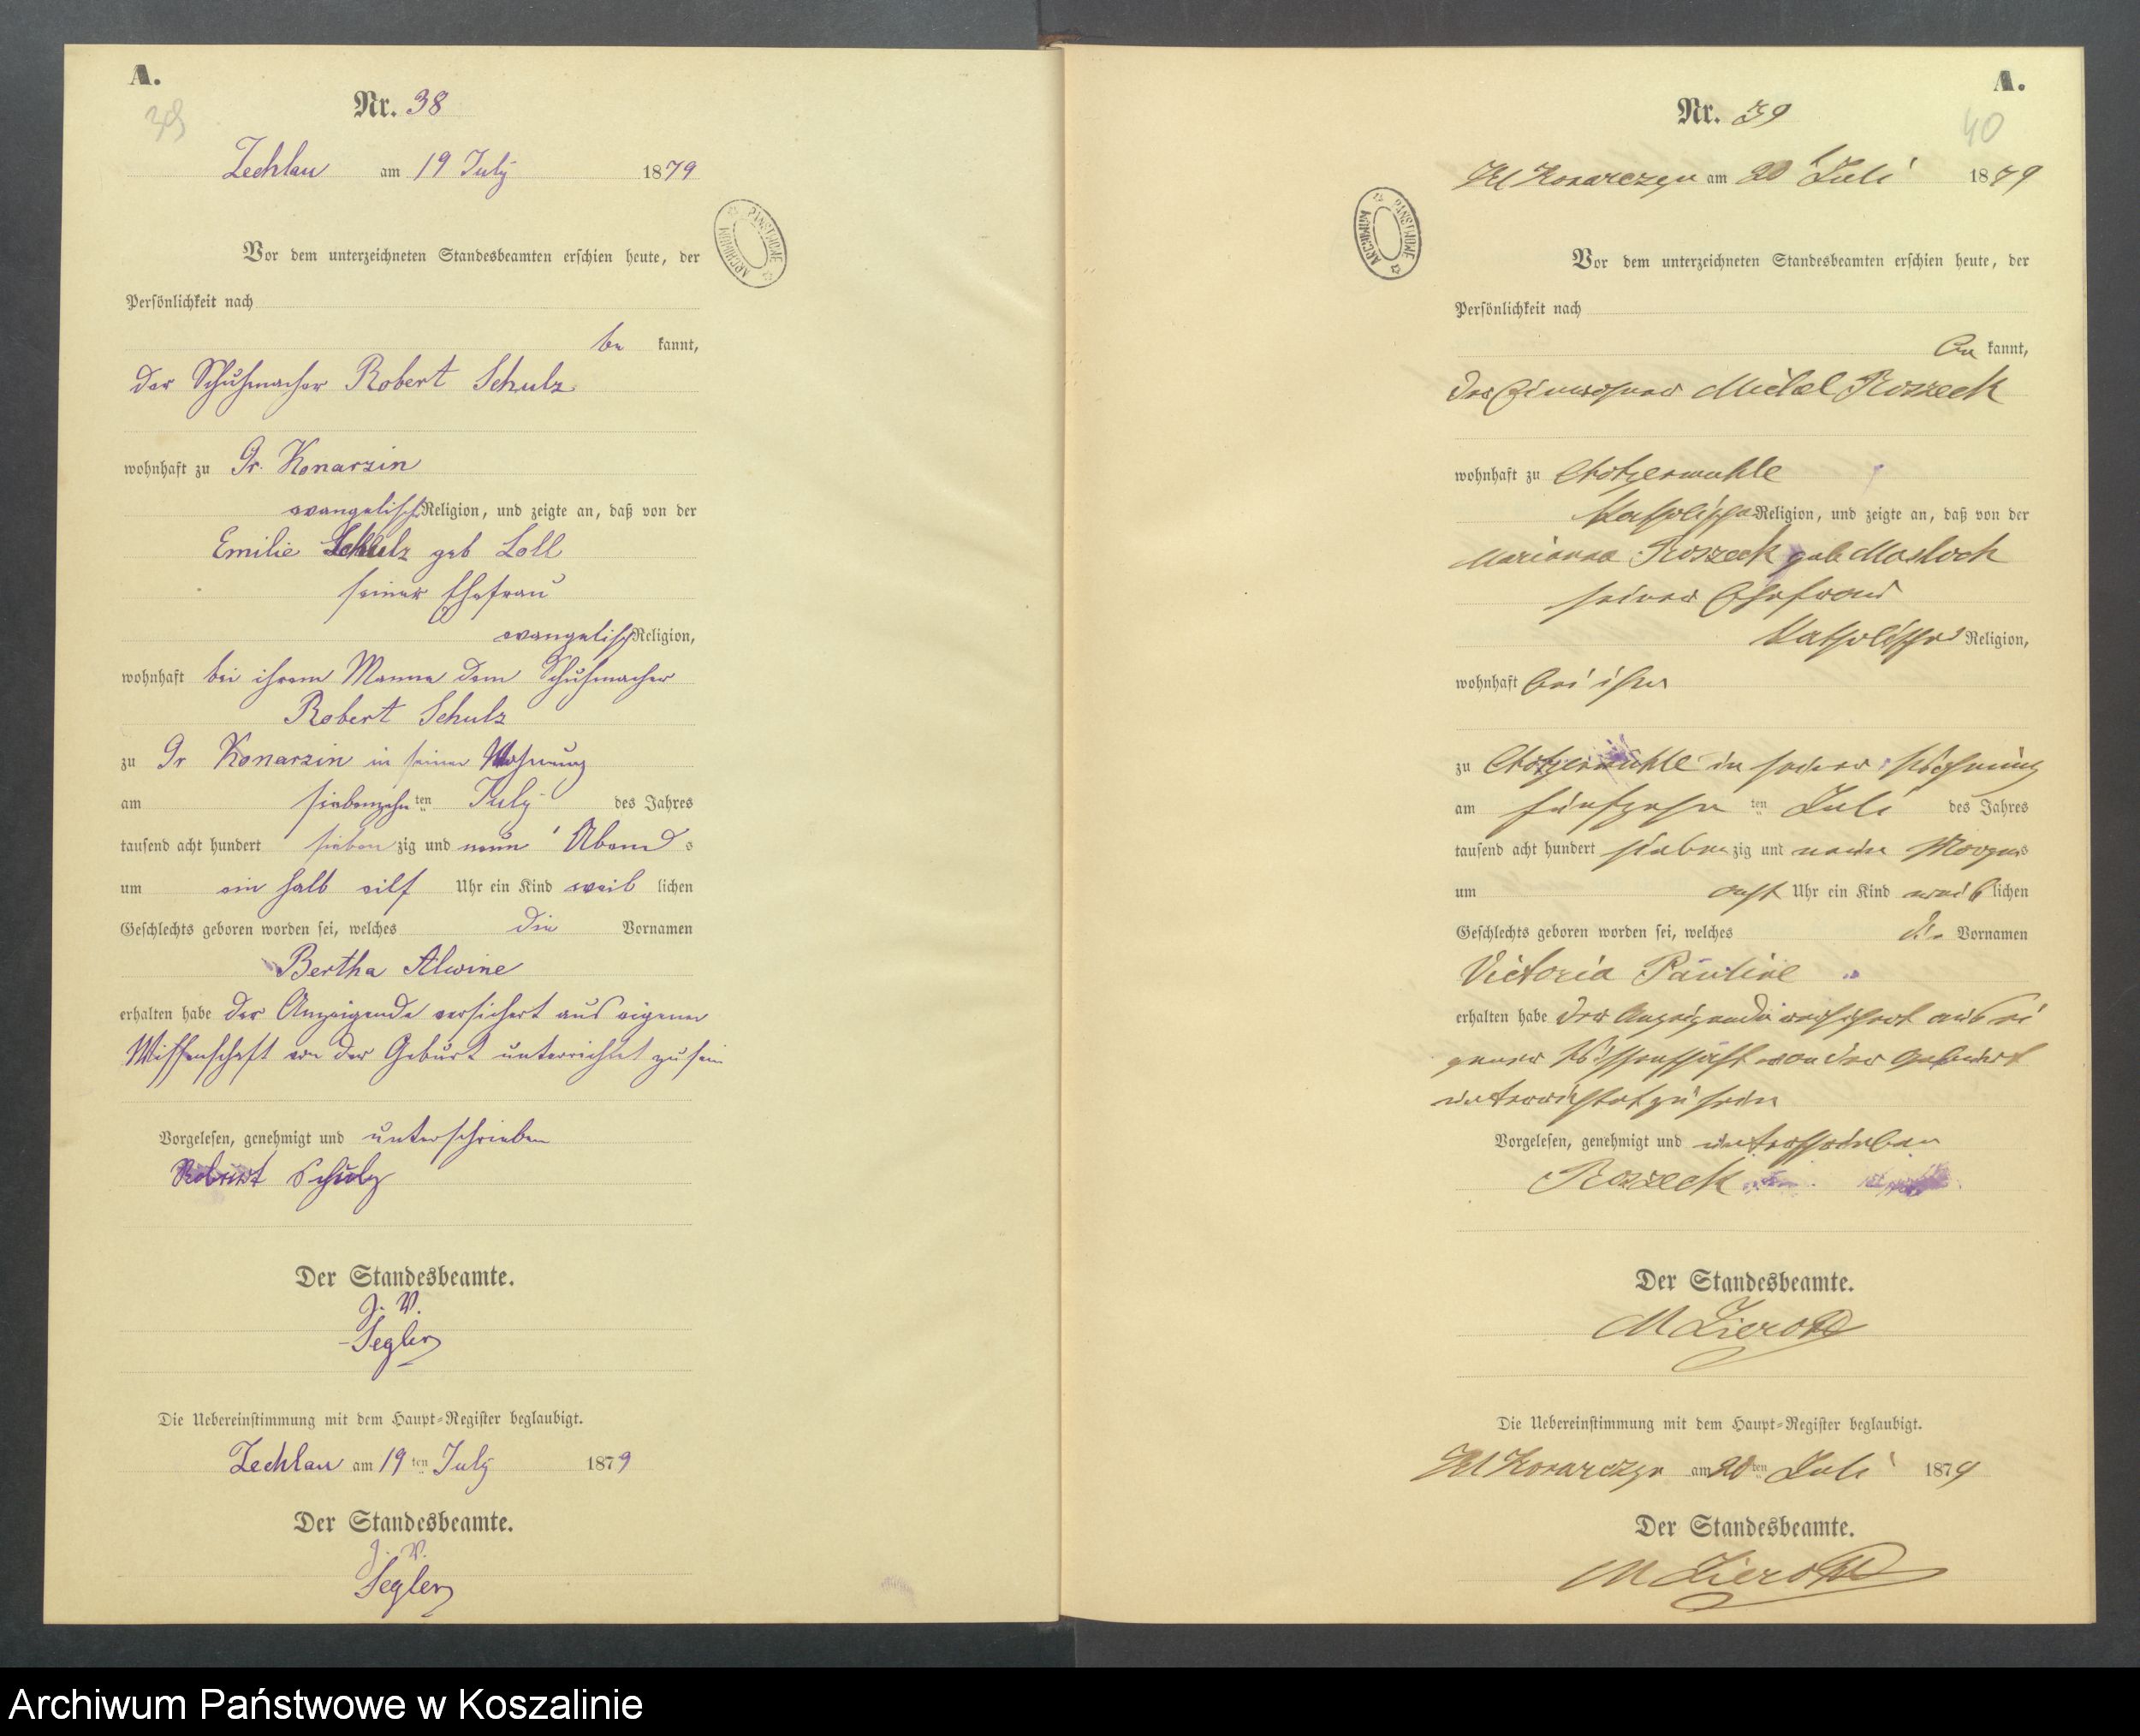 A.
39
Nr. 38
Zechlau am 19 July 1879
ARCHIWUM PAŃSTWOWE
Vor dem unterzeichneten Standesbeamten erschien heute, der
Persönlichkeit nach
be kannt,
der Schuhmacher Robert Schulz
wohnhaft zu Gr. Konarzin
evangelisch Religion, und zeigte an, daß von der
Emilie Schulz geb Loll
seiner Ehefrau
evangelisch Religion,
wohnhaft bei ihrem Manne dem Schuhmacher
Robert Schulz
zu Gr Konarzin in seiner Wohnung
am siebenzehn ten July des Jahres
tausend acht hundert sieben zig und neun Abend s
um ein halb eilf Uhr ein Kind weib lichen
Geschlechts geboren worden sei, welches die Vornamen
Bertha Alwine
erhalten habe der Anzeigende versichert aus eigener
Wissenschaft von der Geburt unterrichtet zu sein
Vorgelesen, genehmigt und unterschrieben
Robert Schulz
Der Standesbeamte.
J. V.
Segler
Die Uebereinstimmung mit dem Haupt-Register beglaubigt.
Zechlau am 19 ten July 1879
Der Standesbeamte.
J. V.
Segler
A.
40
Nr. 39
Kl Konarczyn am 20 Juli 1879
ARCHIWUM PAŃSTWOWE
Vor dem unterzeichneten Standesbeamten erschien heute, der
Persönlichkeit nach
be kannt,
der Einwohner Michael Roszeck
wohnhaft zu Chotzenmühle
katholischer Religion, und zeigte an, daß von der
Marianna Roszeck geb Masloch
seiner Ehefrau
katholischer Religion,
wohnhaft bei ihm
zu Chotzenmühle in seiner Wohnung
am fünfzehn ten Juli des Jahres
tausend acht hundert sieben zig und neun Morgens
um acht Uhr ein Kind weib lichen
Geschlechts geboren worden sei, welches die Vornamen
Victoria Pauline
erhalten habe der Anzeigende versichert aus ei
gener Wissenschaft von der Geburt
unterrichtet zu sein
Vorgelesen, genehmigt und unterschrieben
Roszeck
Der Standesbeamte.
Die Uebereinstimmung mit dem Haupt-Register beglaubigt.
Kl Konarczyn am 20 ten Juli 1879
Der Standesbeamte.
Archiwum Państwowe w Koszalinie